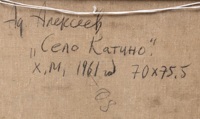 Ад Алексеев
„Село Катино".
х.м, 1961 г 70х75.5